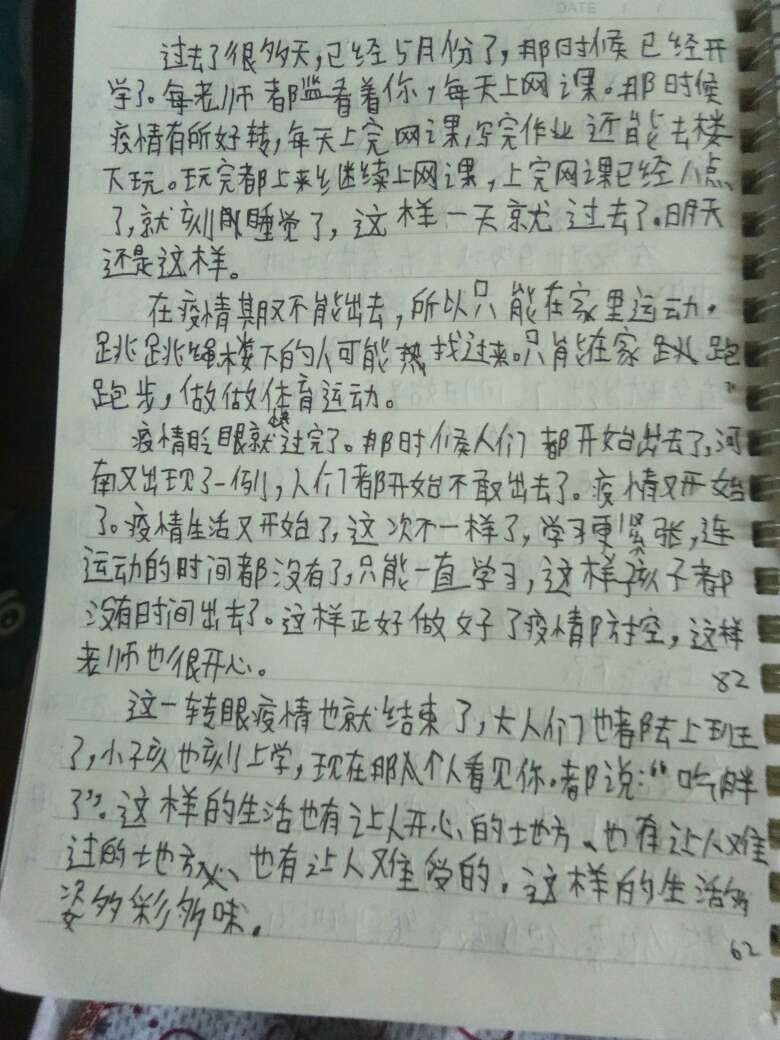 过去了很多天,已经5月份了,那时候已经开
学了。每老师都监看着你,每天上网课。那时候
疫情有所好转,每天上完网课,写完作业还能去楼
下玩。玩完都上来继续上网课,上完网课已经八点
了,就刻睡觉了,这样一天就过去了。明天
还是这样。
在疫情期又不能出去,所以只能在家里运动。
跳跳绳楼下的人可能热找过来。只能在家跳跑
跑步,做做体育运动。
疫情眨眼就快过完了。那时候人们都开始出去了,河
南又出现了一例,人们都开始不敢出去了。疫情又开始
了。疫情生活又开始了,这次不一样了,学习更紧张,连
运动的时间都没有了,只能一直学习,这样孩子都
没有时间出去了。这样正好做好了疫情防控,这样
老师也很开心。
82
这一转眼疫情也就结束了,大人们也都去上班
了,小孩也刻上学,现在那个人看见你。都说:“吃胖
了”。这样的生活也有让人开心的地方、也有让人难
过的地方、也有让人难受的。这样的生活多
姿多彩多味。
62